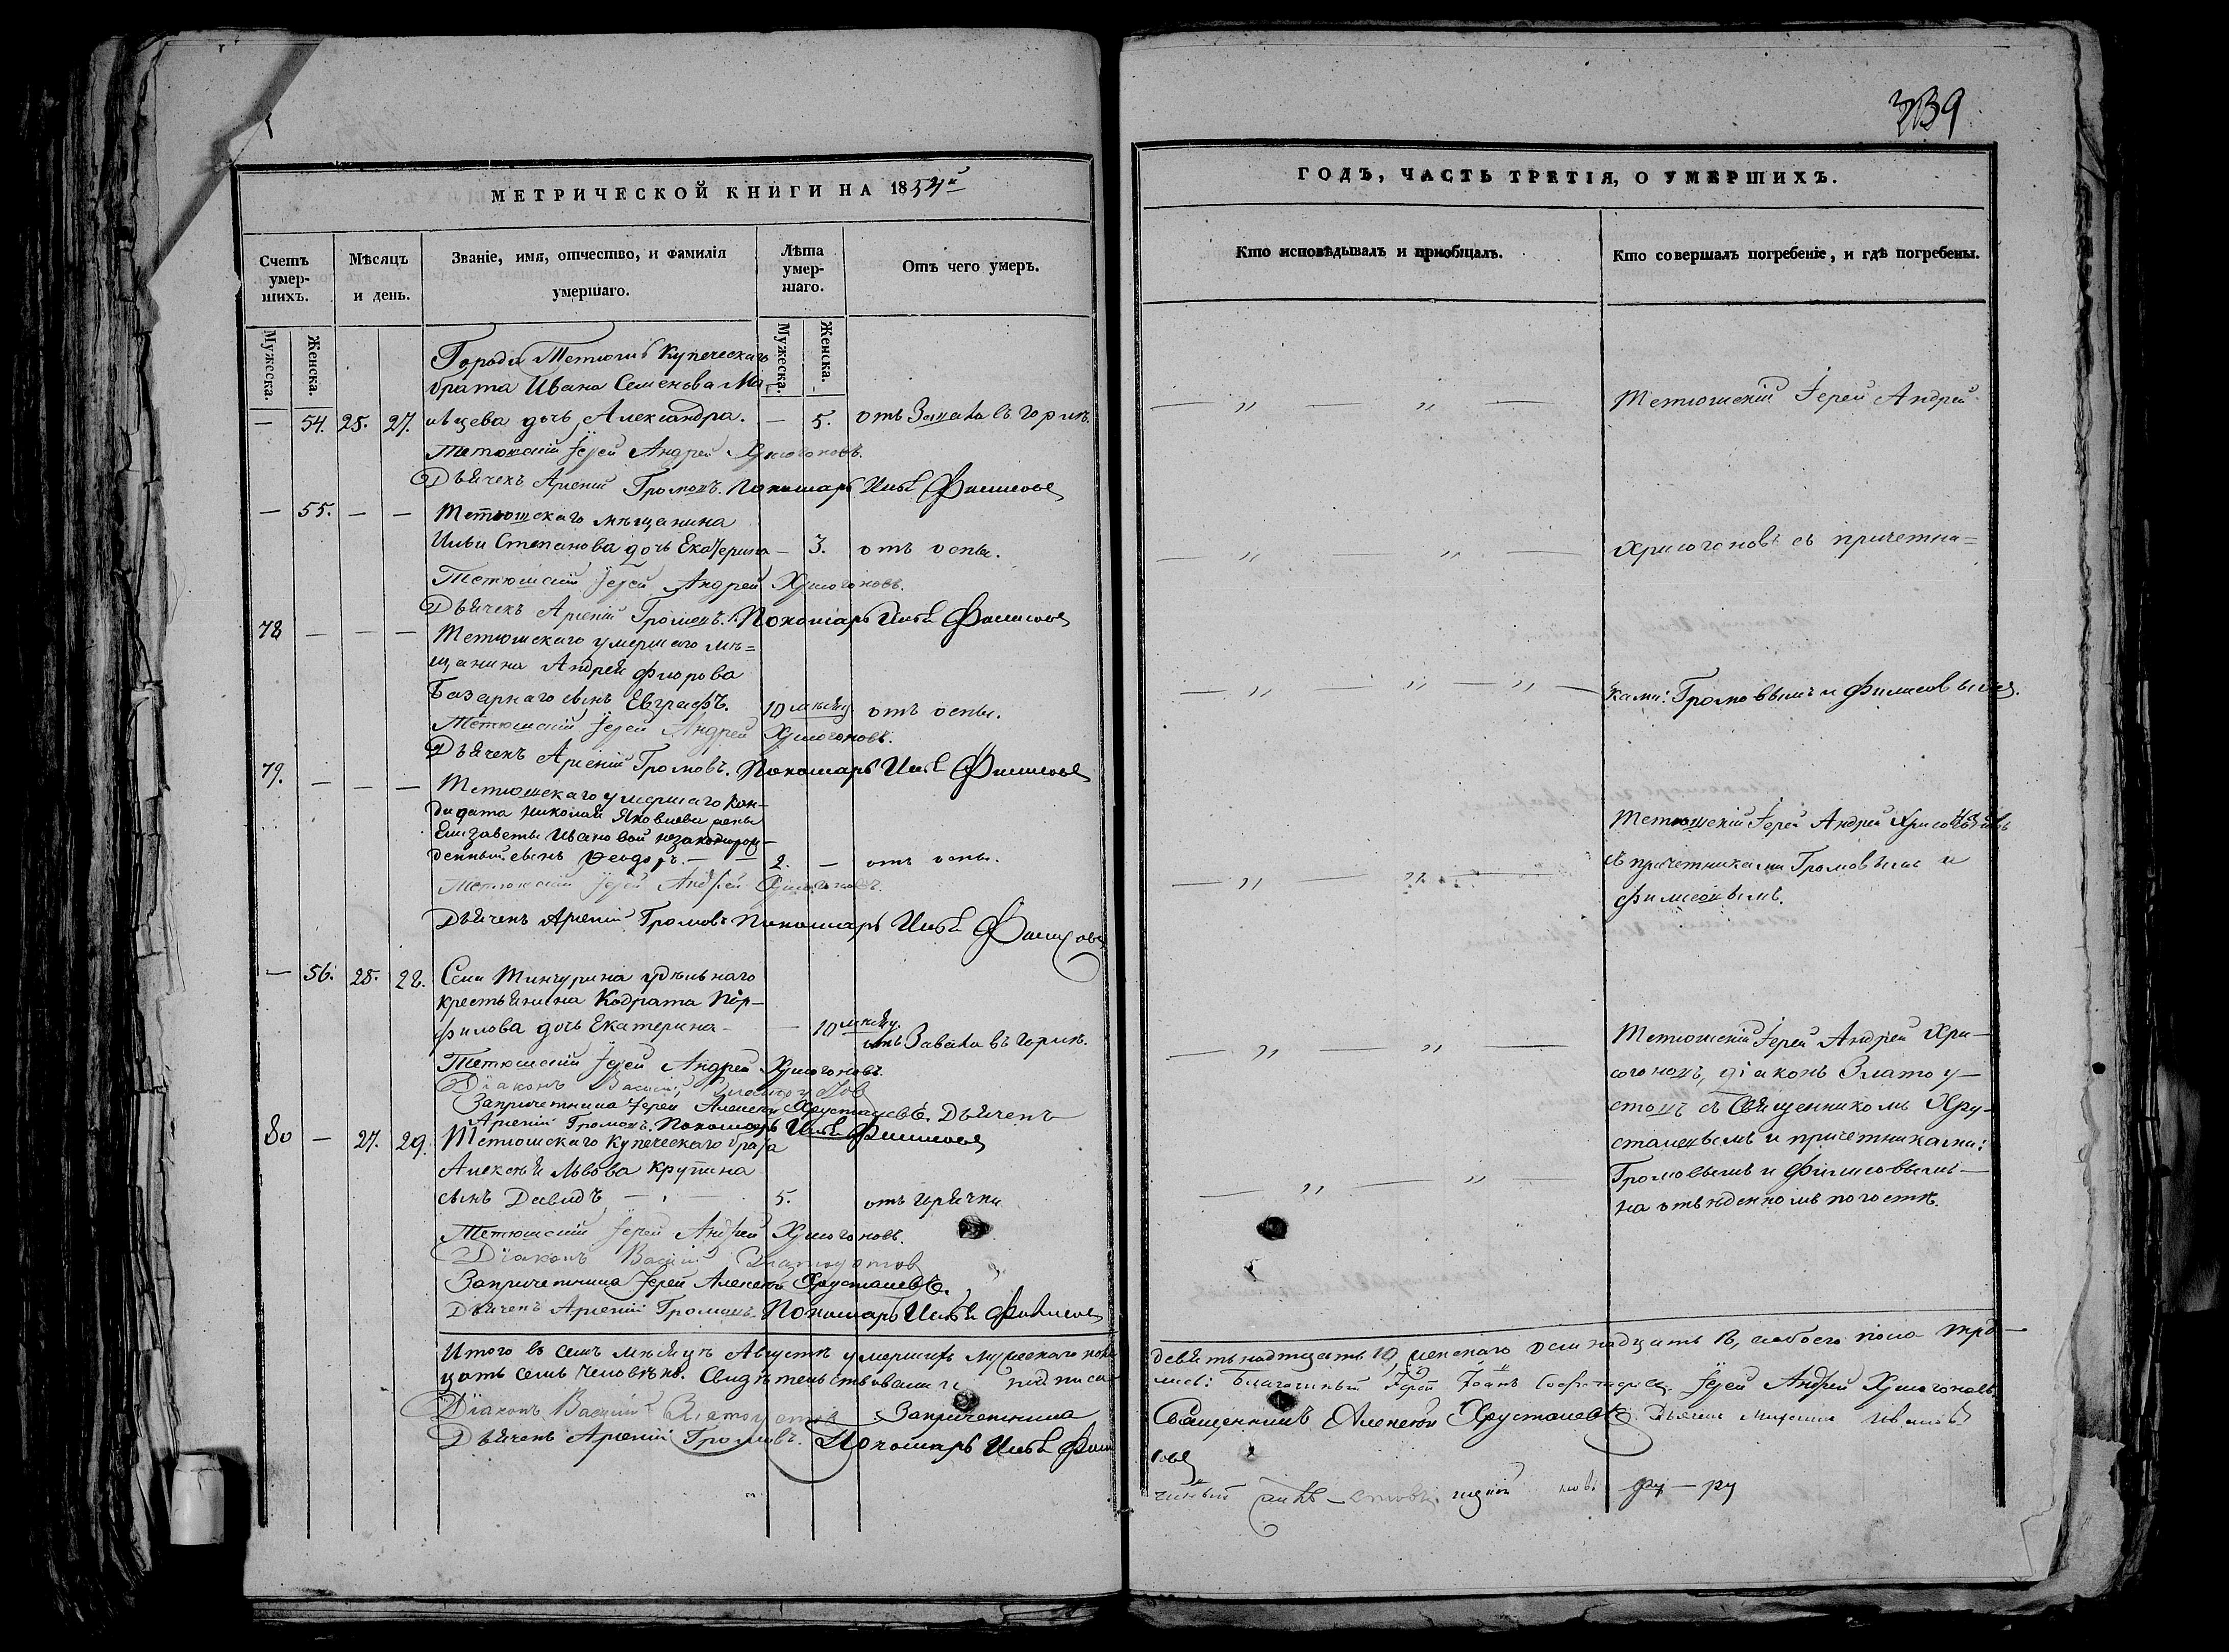 239
МЕТРИЧЕСКОЙ КНИГИ НА 1854й
Счетъ умер-шихъ.
Мужеска.
Женска.
Мѣсяцъ и день.
Званіе, имя, отчество, и фамилія
умершаго.
Лѣта умер-шаго.
Мужеска.
Женска.
Отъ чего умеръ.
Города Тетюшъ Купеческаго
брата Ивана Семенова
— 54. 25. 27. дочь Александра. — 5. отъ въ горлѣ.
Тетюшскій Іерей Андрей Хрисогоновъ.
Дьячекъ Арсеній Громовъ. Пономарь Филисовъ
— 55. — — Тетюшскаго мѣщанина
Ильи Степанова дочь Екатерина — 3. отъ оспы.
Тетюшскій Іерей Андрей Хрисогоновъ.
Дьячекъ Арсеній Громовъ. Пономарь Филисовъ
78 — — — Тетюшскаго умершаго мѣ=
щанина Андрея Флорова
Базарнаго сынъ Евграфъ. 10 мѣсяц. отъ оспы.
Тетюшскій Іерей Андрей Хрисогоновъ.
Дьячекъ Арсеній Громовъ. Пономарь Филисовъ
79. — — — Тетюшскаго умершаго кан-
дидата Николая Яковлева жены
Елизаветы Ивановой незаконорож-
денный сынъ Ѳеодоръ. — 2. — отъ оспы.
Тетюшскій Іерей Андрей Хрисогоновъ.
Дьячекъ Арсеній Громовъ Пономарь Филисовъ
— 56. 25. 28. Села Тинчурина удѣльнаго
крестьянина Кодрата Пор-
филова дочь Екатерина — 10 мѣсяц.
отъ Завала въ горлѣ.
Тетюшскій Іерей Андрей Хрисогоновъ.
Діаконъ Василій Златоустовъ
Запричетника Іерей Алексѣй Хрусталевъ. Дьячекъ
Арсеній Громовъ. Пономарь Филисовъ
80 — 27. 29. Тетюшскаго купеческаго брата
Алексѣя Львова Крупина
сынъ Давидъ — 5. отъ горячки
Тетюшскій Іерей Андрей Хрисогоновъ.
Діаконъ Василій Златоустовъ
Запричетника Іерей Алексѣй Хрусталевъ.
Дьячекъ Арсеній Громовъ. Пономарь Филисовъ
Итого въ семъ мѣсяцѣ Августѣ умершихъ мужескаго пола
цать семь человѣкъ. Свидѣтельствовали и подписа-
Діаконъ Василій Златоустовъ Запричетника
Дьячекъ Арсеній Громовъ. Пономарь
ГОДЪ, ЧАСТЬ ТРЕТІЯ, О УМЕРШИХЪ.
Кто исповѣдывалъ и пріобщалъ.
Кто совершалъ погребеніе, и гдѣ погребены.
Тетюшскій Іерей Андрей
Хрисогоновъ съ причетни=
ками: Громовымъ и Филисовымъ.
Тетюшскій Іерей Андрей Хрисогоновъ
съ причетниками Громовымъ и
Филисовымъ.
Тетюшскій Іерей Андрей Хри-
согоновъ, діаконъ Златоу-
стовъ съ Священникомъ Хру-
сталевымъ и причетниками:
Громовымъ и Филисовымъ —
на отведенномъ погостѣ.
девятьнадцать 19, женскаго осмнадцать 18, обоего пола трид-
лись: Благочинный Іерей Іоаннъ Іерей Андрей Хрисогоновъ.
Священникъ Алексѣй Хрусталевъ.